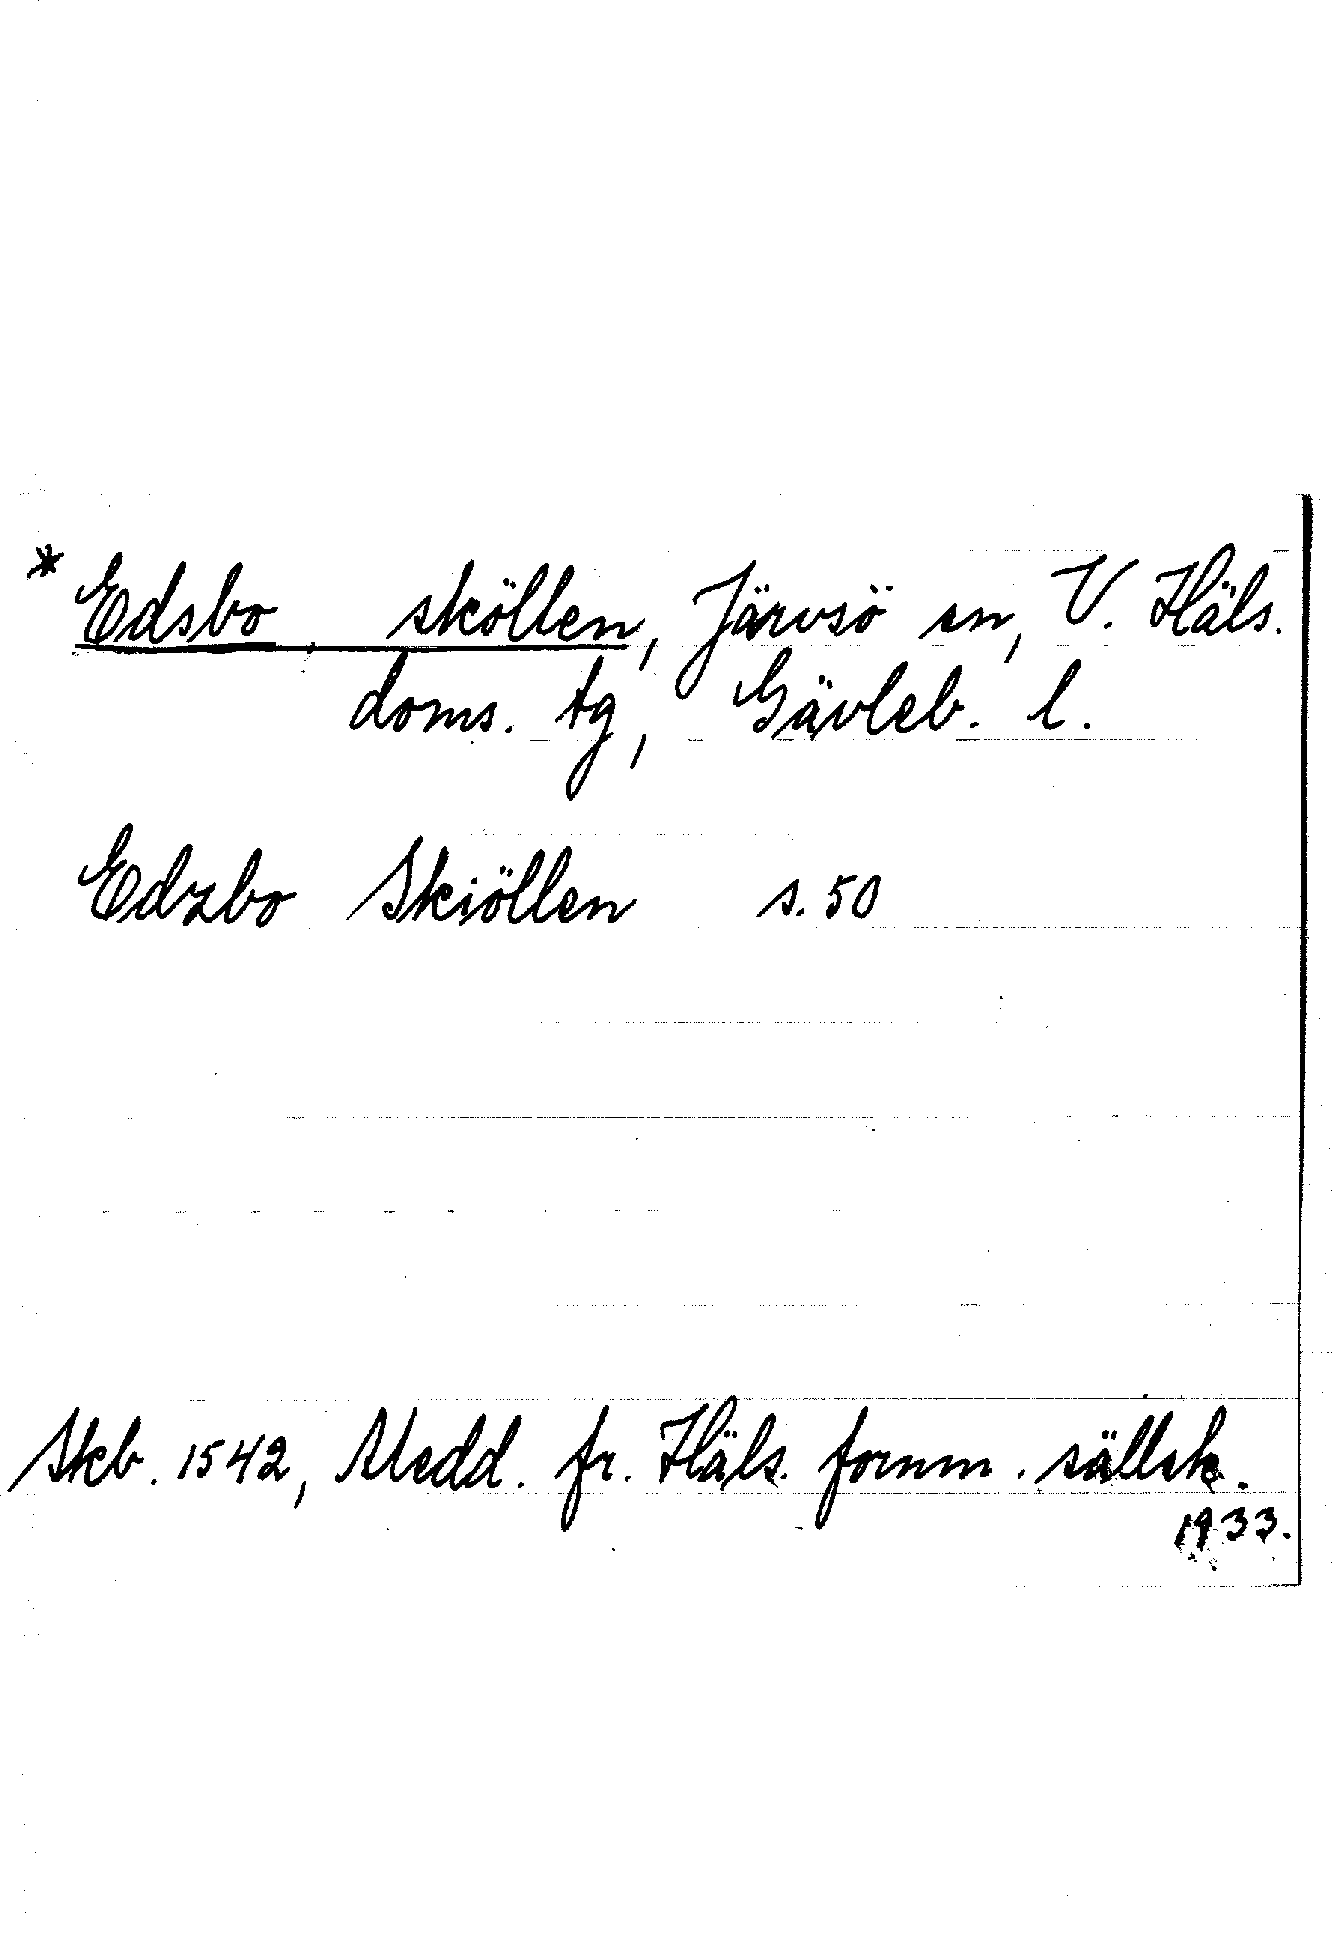 * Edsbo sköllen, Järvsö sn, V. Häls.
doms. tg, Gävleb. l.
Edzbo Skiöllen s. 50
Skb. 1542, Medd. fr. Häls. fornm. sällsk.
1933.